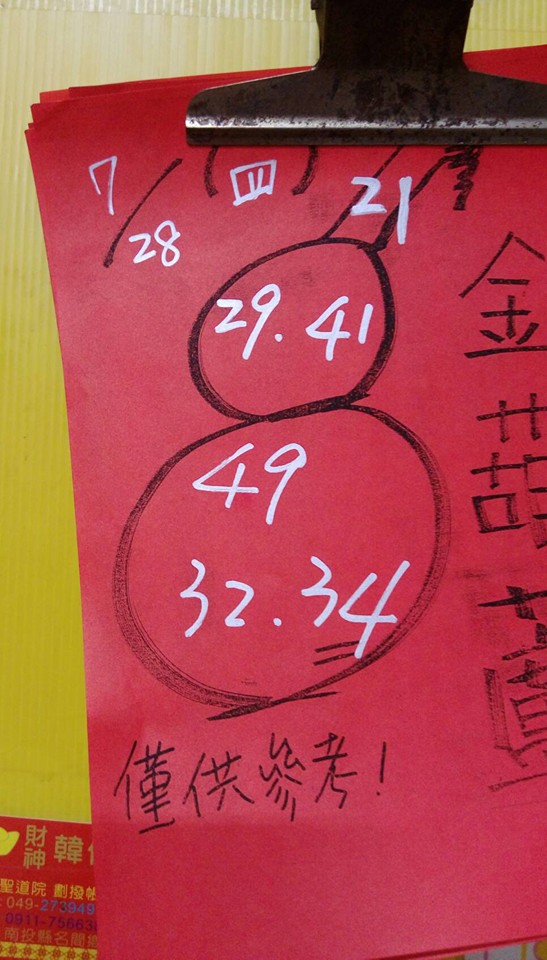 7/28 (四)
21
29.41
49
32.34
僅供參考!
金葫蘆
財神 韓
聖道院 劃撥帳
049-273949
0911-75663
南投縣名間鄉